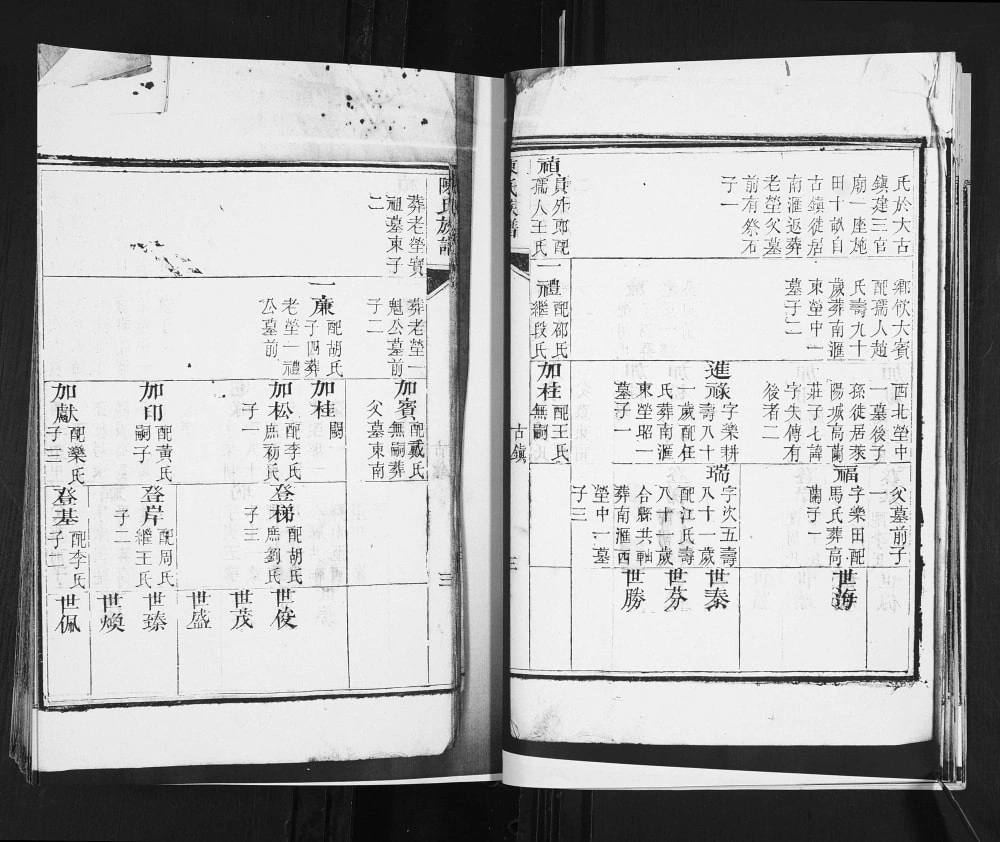 氏於大古
鎮建三官
廟一座施
田十畝自
古鎮徙居
南滙返葬
老塋父墓
前有祭石
子一
禎
員外郎配
孺人王氏
鄉飲大賓
配孺人趙
氏壽九十
歲葬南滙
東塋中一
墓子二
一禮
配邵氏
繼段氏
西北塋中
一墓後子
孫徙居萊
陽城高蘭
莊子七諱
字失傳有
後者二
進祿
字樂耕
壽八十
一歲配任
氏葬南滙
東塋昭一
墓子一
加桂
配王氏
無嗣
父墓前子
一
福
字樂田配
馬氏葬高
蘭子一
瑞
字次五壽
八十一歲
配江氏壽
八十一歲
合縣共軸
葬南滙西
塋中一墓
子三
世海
世泰
世芬
世勝
陳氏族譜
古鎮
三
葬老塋寶
祖墓東子
二
葬老塋一
魁公墓前
子二
一廉
配胡氏
子四葬
老塋一禮
公墓前
加賓
配戴氏
無嗣葬
父墓東南
加桂
闕
加松
配李氏
庶初氏
子一
加印
配黃氏
嗣子一
加獻
配欒氏
子三
登梯
配胡氏
庶劉氏
子三
登岸
配周氏
繼王氏
子二
登基
配李氏
子二
世俊
世茂
世盛
世臻
世煥
世佩